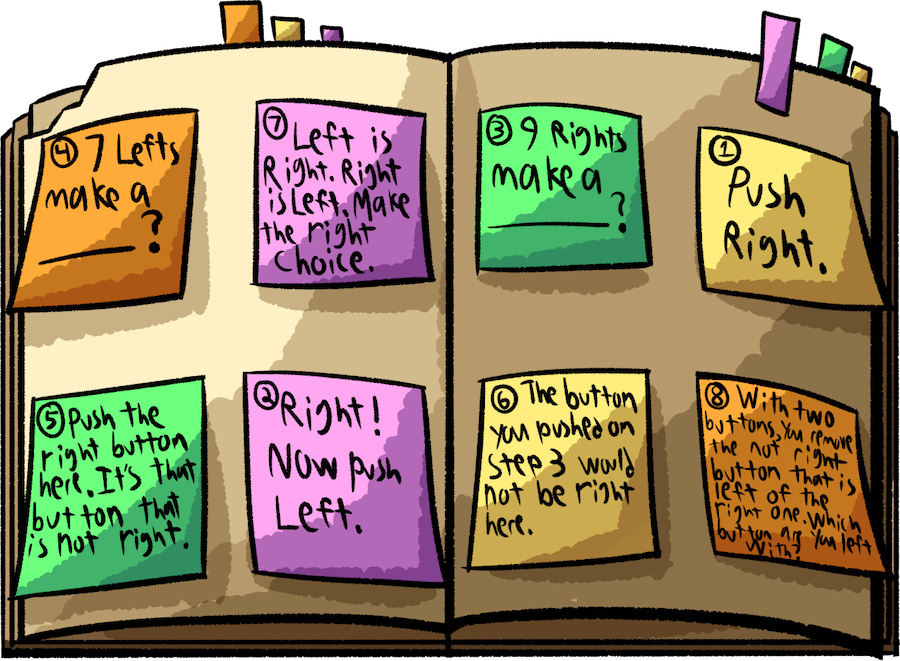 ④ 7 Lefts
make a
____?
⑦ Left is
Right. Right
is Left. Make
the right
choice.
③ 9 Rights
make a
____?
① Push
Right.
⑤ Push the
right button
here. It's that
button that
is not right.
② Right!
Now push
Left.
⑥ The button
you pushed on
step 3 would
not be right
here.
⑧ With two
buttons, you remove
the not right
button that is
left of the
right one. Which
button are you left
with?